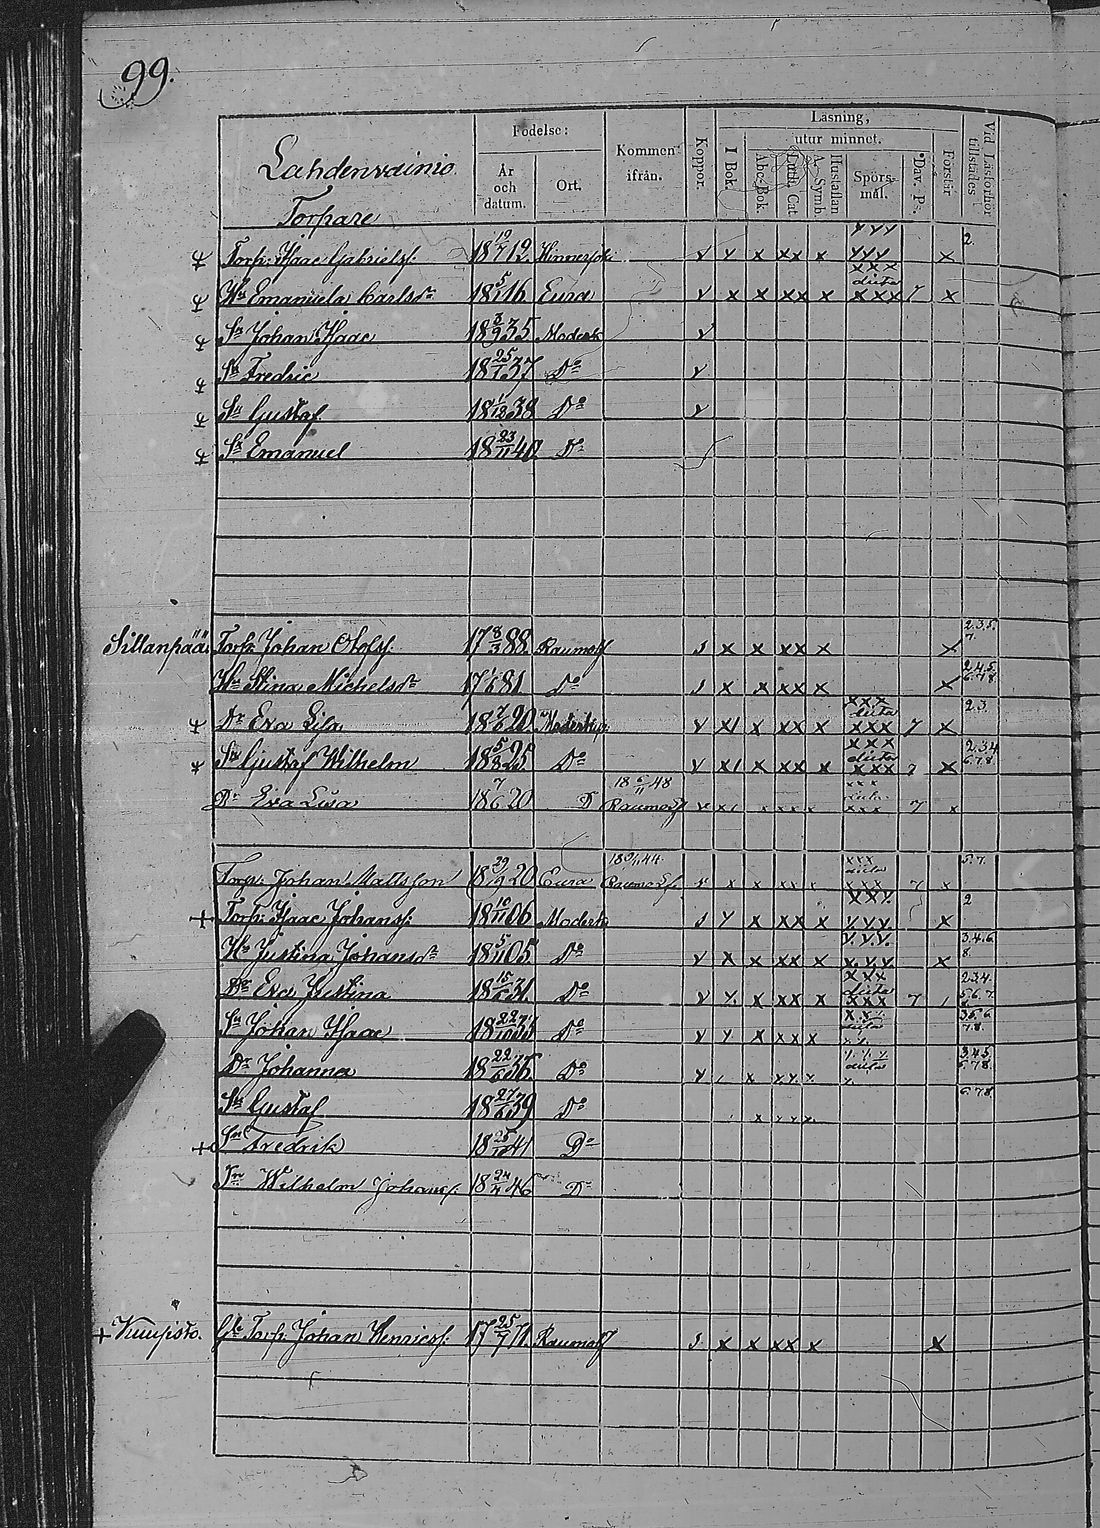 99.
Lahdenvainio.
Torpare
Födelse:
År och datum.
Ort.
Kommen ifrån.
Koppor.
Läsning,
utur minnet.
I Bok.
Abc-Bok.
Luth. Cat.
A. Symb.
Hustaflan
Spörsmål.
Dav. P.
Förstår
Vid Läsförhör tillstädes
Torp. Isaac Gabrielss. 18 19/7 12. Hinnerjoki v v x xx x v v v v v v x 2
Hu Emanuela Carlsdr 18 5/1 16 Eura v x x xx x x x x dicta x x x 7 x
Sn Johan Isaac 18 3/9 35 Moderk v
Sn Fredric 18 25/1 37 Do v
Sn Gustaf 18 1/12 38 Do v
Sn Emanuel 18 23/11 40 Do
Sillanpää. Torp. Johan Olofss. 17 8/3 88 Raumo s x x xx x x 2.3.5. 7.
Hu Stina Michelsdr 17 81 Do s x x xx x x 2.4.5. 6.7.8
Dr Eva Lisa 18 7/6 20 Moderkyr v x x xx x x x x dicta x x x 7 x 2.3.
Sn Gustaf Wilhelm 18 5/8 25 Do v x x xx x x x x dicta x x x 7 x 2.3.4 6.7.8
Dr Eva Lisa 18 7/6 20 D 18 6/11 48 Raumo v x x x x x x x x x x 7 x
Torp. Johan Mattsson 18 29/9 20 Eura 18 44 Raumo v x x xx x x x x dicta x x x 7 x 5.7.
Torp. Isaac Johanss. 18 10/11 06 Moderk s v x xx x x x x v v v x 2
Hu Justina Johansdr 18 5/11 05 Do v x x xx x v v v x v v x 3.4.6. 8.
Dr Eva Justina 18 15/6 31 Do v x x xx x x x x dicta x x x 7 2.3.4. 5.6.7. 8.
Sn Johan Isaac 18 22/10 33 Do v v x x x x x x x dicta 3.5.6. 7.8.
Dr Johanna 18 22/6 36 Do v x x x x dicta 3.4.5. 6.7.8.
Sn Gustaf 18 27/6 39 Do x 6.7.8.
Sn Fredrik 18 25/10 41 Do
Sn Wilhelm Johanss. 18 24/4 46 Do
Kuupisto. Gl. Torp. Johan Henricss. 17 25/7 71. Raumo s x x xx x x